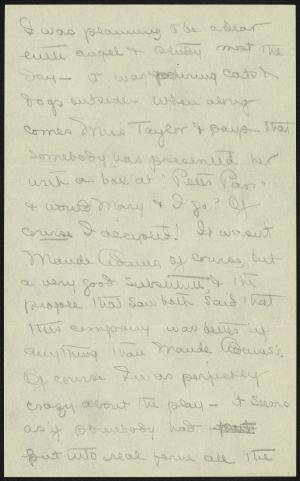 I was planning to be a dear
little angel & study most the
day – it was pouring cats &
dogs outside – when along
comes Miss Taylor & says that
somebody has presented her
with a box at "Peter Pan"
& would Mary & I go? Of
course I accepted! It wasn't
Maude Adams of course but
a very good substitute, & the
people that saw both said that
this company was better if
anything than Maude Adams's.
Of course I was perfectly
crazy about the play – it seems
as if somebody had
put into real form all the